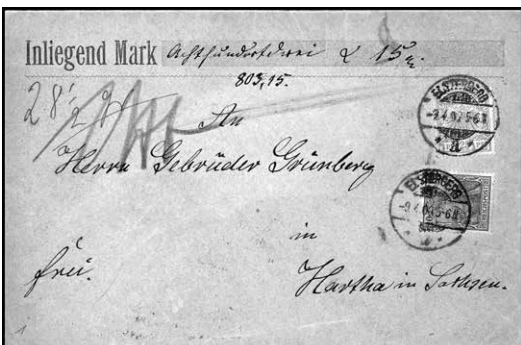 Inliegend Mark Achthundertdrei & 15
803,15.
28 1/2
An
Herrn Gebrüder Grünberg
in
frei.
Hartha in Sachsen.
ELSTERBERG
-9.4.02.5-6N
ELSTERBERG
-9.4.02.5-6N